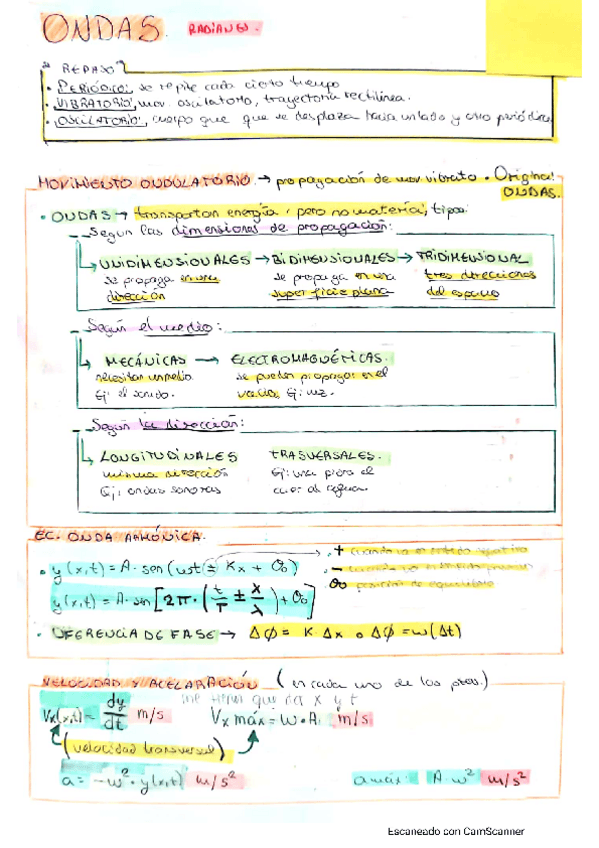 ONDAS. RADIANES.
" REPASO"
• PERIÓDICO: se repite cada cierto tiempo
• VIBRATORIO: mov. oscilatorio, trayectoria rectilínea.
• OSCILATORIO: cuerpo que que se desplaza hacia un lado y otro periódica
MOVIMIENTO ONDULATORIO. → propagación de mov vibrato • Origina!
ONDAS.
• ONDAS → transportan energía, pero no materia, tipos:
Según las dimensiones de propagación:
UNIDIMENSIONALES → BIDIMENSIONALES → TRIDIMENSIONAL
se propaga en una se propaga en una tres direcciones
dirección superficie plana del espacio
Según el medio:
MECÁNICAS → ELECTROMAGNÉTICAS.
necesitan un medio se pueden propagar en el
Ej: el sonido. vacío, Ej: luz.
Según la dirección:
LONGITUDINALES TRASVERSALES.
misma dirección Ej: una piedra al
Ej: ondas sonoras caer al agua
EC. ONDA ARMÓNICA.
• y(x,t) = A · sen(wt ± Kx + θ₀) + cuando va en sentido negativo
- cuando va en sentido positivo
y(x,t) = A · sen[2π · (t/T ± x/λ) + θ₀] θ₀ posición de equilibrio
• DIFERENCIA DE FASE → Δφ = K · Δx o Δφ = w(Δt)
VELOCIDAD Y ACELARACIÓN (en cada uno de los ptos.)
me tienen que dar x y t
Vx(x,t) = dy/dt m/s Vx máx = w • A m/s
(velocidad transversal)
a = -w² · y(x,t) m/s² amáx: A · w² m/s²
Escaneado con CamScanner